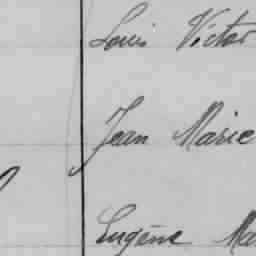 Louis Victor
Jean Marie
Eugène Ma